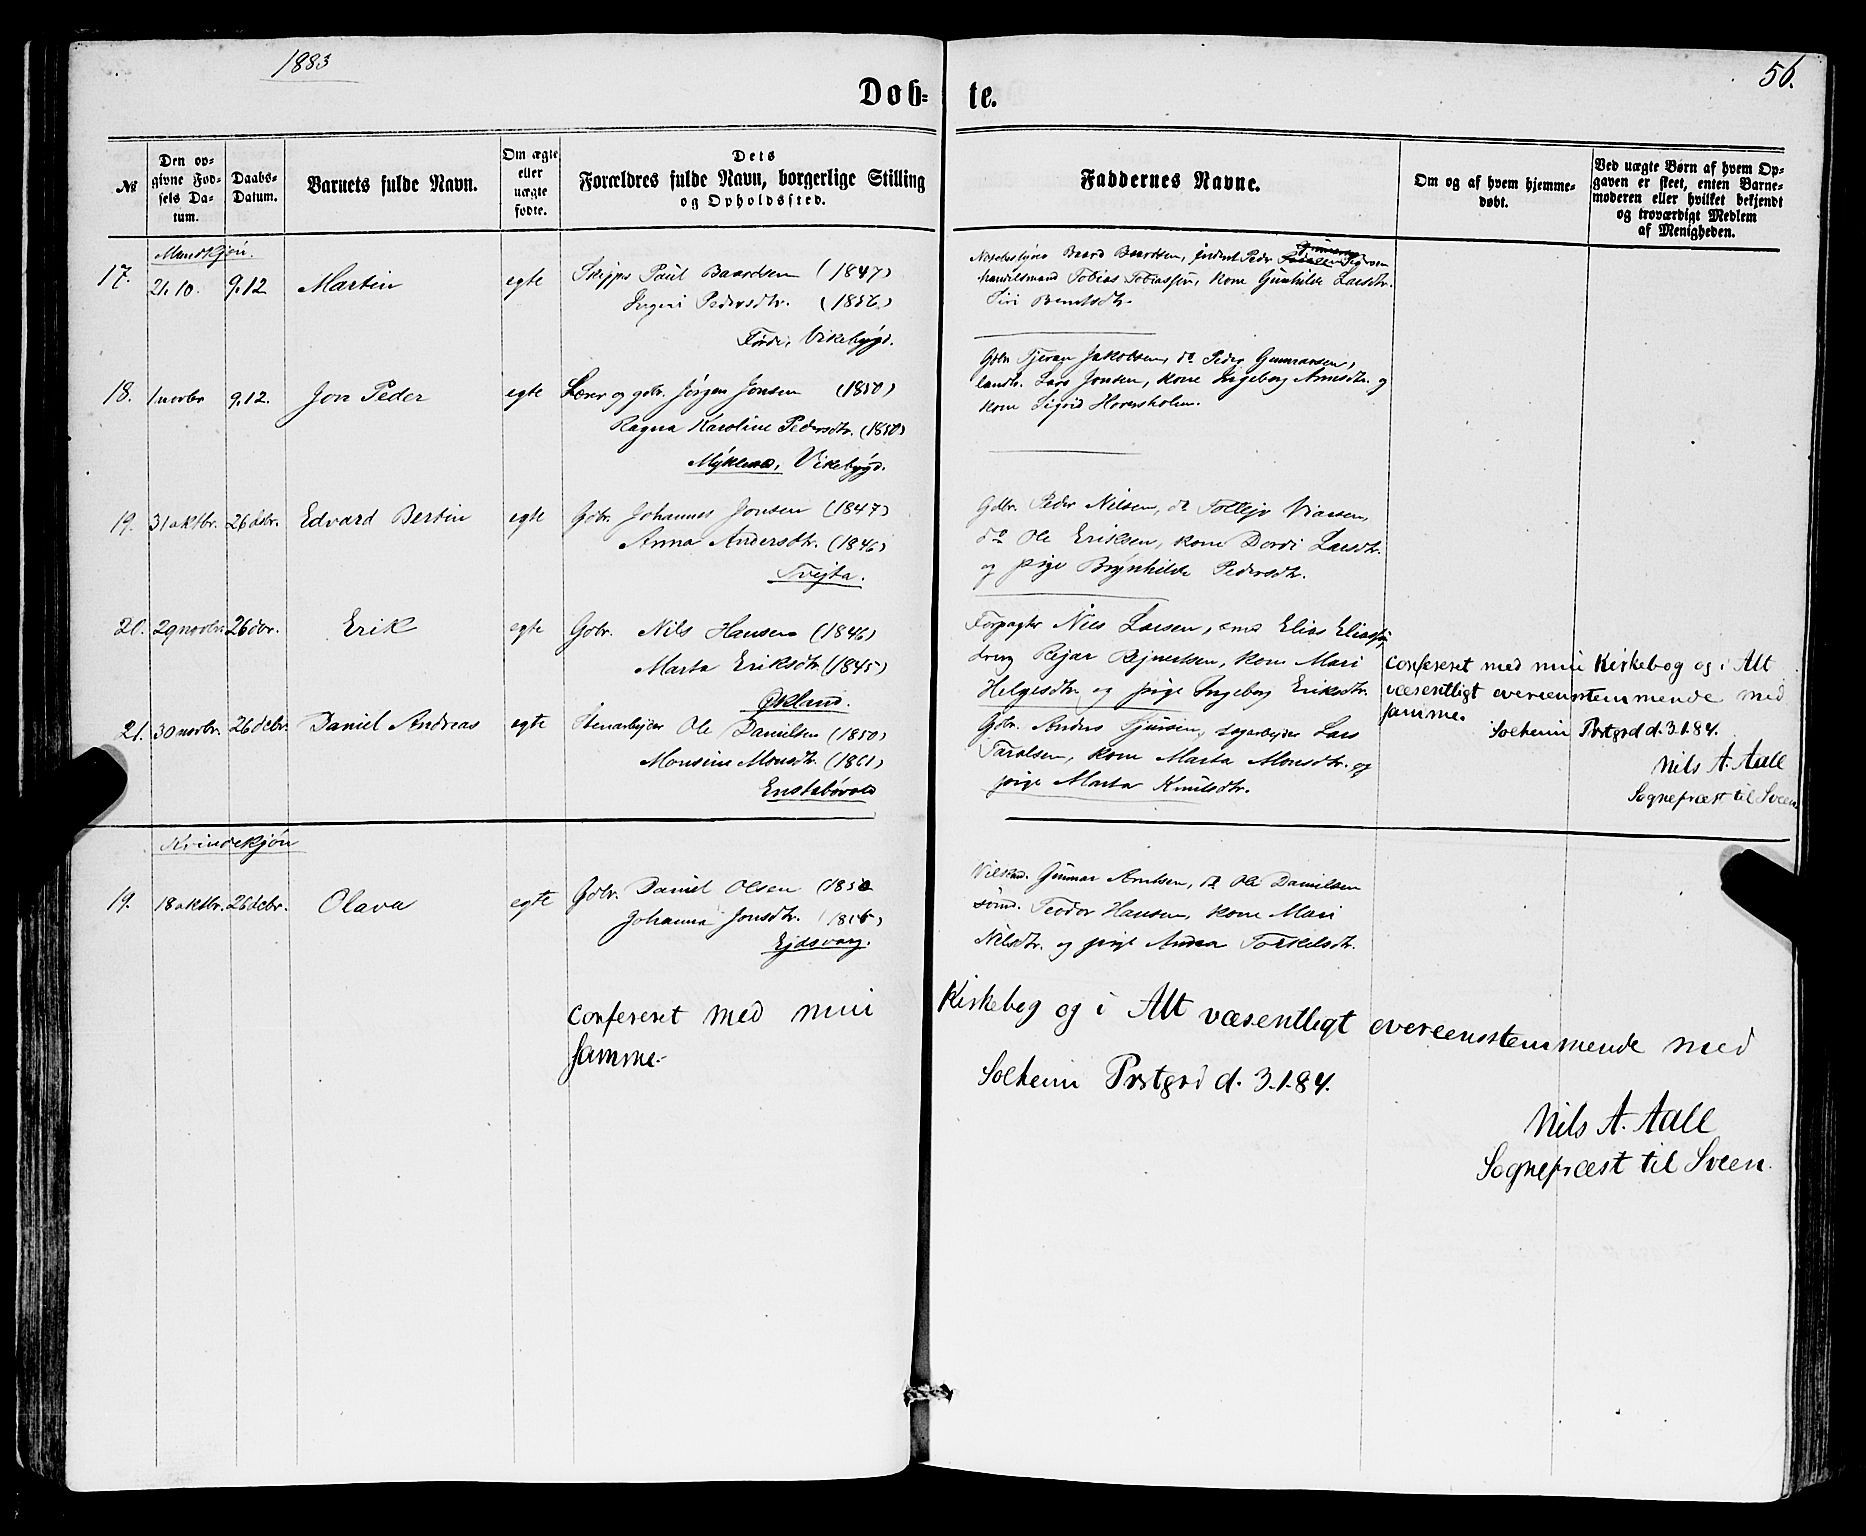 1883
56.
Døb=
te.
№
Den opgivne Fødsels Datum.
Daabs-Datum.
Barnets fulde Navn.
Om ægte eller uægte fødte.
Dets Forældres fulde Navn, borgerlige Stilling og Opholdssted.
Faddernes Navne.
Om og af hvem hjemmedøbt.
Ved uægte Børn af hvem Opgaven er skeet, enten Barnemoderen eller hvilket bekjendt og troværdigt Medlem af Menigheden.
Mandkjøn.
17. 21.10. 9.12 Martin egte Skipps Paul Baardsen (1847)
Ingeri Pedersdtr. (1856)
Førde, Vikebygd.
Baard Baardsen, Peder
Tobias Tobiassen, kone Gunhilde Larsdtr.
Siri Berntsdtr.
18. 1 novbr 9.12. Jon Peder egte Lærer og gbr. Jørgen Jonsen (1850)
Ragna Karoline Pedersdtr. (1850)
Myklend, Vikebygd.
Gdbr Tjeran Jakobsen, do Peder Gunnarsen,
landh. Lars Jonsen, kone Ingeborg Arnesdtr. og
kone Sigrid Hoversholm.
19. 31 oktbr. 26 debr. Edvard Bertin egte Gdbr. Johannes Jonsen (1847)
Anna Andersdtr. (1846)
Tvejta.
Gdbr. Peder Nilsen, do Tollejv
do Ole Eriksen, kone Dordi Larsdtr.
og pige Brynhilde Pedersdtr.
20. 29 novbr. 26 dbr. Erik egte Gdbr. Nils Hansen (1846)
Marta Eriksdtr (1845)
Økland.
Forpagter Nils Larsen, Elias
dreng Rejar Rejnertsen, kone Mari
Helgesdtr. og pige Ingeborg Eriksdtr.
21. 30 novbr. 26 debr. Daniel Andreas egte Stenarbejder Ole Danielsen (1850)
Monsine Monsdtr. (1861)
Enstabøvold
Gdbr. Anders Lars
Taralsen, kone Marta Monsdtr. og
pige Marta Knutsdtr.
confereret med min Kirkebog og i Alt
væsentligt overeensstemmende med
samme.
Solheim Prstgrd d. 3.1.84.
Nils A. Aall
Sognepræst til Sveen
Kvindekjøn
19. 18 oktbr. 26 debr. Olava egte Gdbr. Daniel Olsen (1850
Johanna Jonsdtr.
Ejdsvaag.
Gunnar do Ole Danielsen
Teodor Hansen, kone Mari
Nilsdtr. og pige Anna Torkelsdtr.
confereret med min Kirkebog og i Alt væsentligt overeensstemmende med
samme.
Solheim Prstgrd d. 3.1.84.
Nils A. Aall
Sognepræst til Sveen.